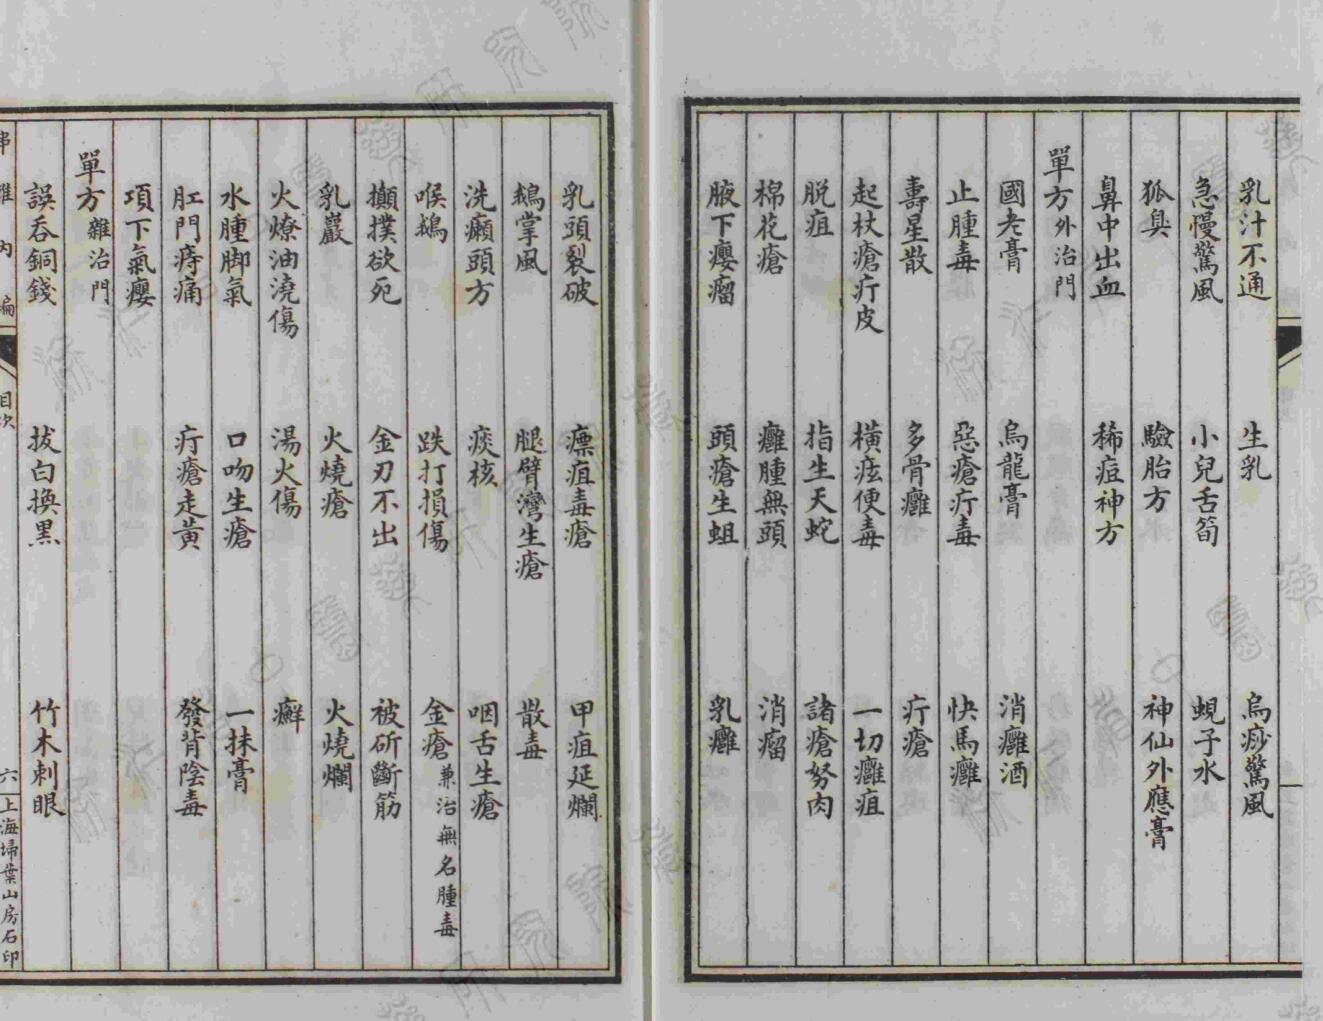 乳汁不通　生乳　烏痧驚風
急慢驚風　小兒舌筍　蜆子水
狐臭　驗胎方　神仙外應膏
鼻中出血　稀痘神方
單方外治門
國老膏　烏龍膏　消癰酒
止腫毒　惡瘡疔毒　快馬癰
壽星散　多骨癰　疔瘡
起杖瘡疔皮　橫痃便毒　一切癰疽
脱疽　指生天蛇　諸瘡努肉
棉花瘡　癰腫無頭　消瘤
腋下癭瘤　頭瘡生蛆　乳癰
乳頭裂破　瘭疽毒瘡　甲疽延爛
鵝掌風　腿臂灣生瘡　散毒
洗癩頭方　痰核　咽舌生瘡
喉鵝　跌打損傷　金瘡兼治無名腫毒
攧撲欲死　金刃不出　被斫斷筋
乳巖　火燒瘡　火燒爛
火燎油澆傷　湯火傷　癬
水腫脚氣　口吻生瘡　一抹膏
肛門痔痛　疔瘡走黃　發背陰毒
項下氣癭
單方雜治門
誤吞銅錢　拔白換黑　竹木刺眼
串雅內編　目次　六　上海埽葉山房石印